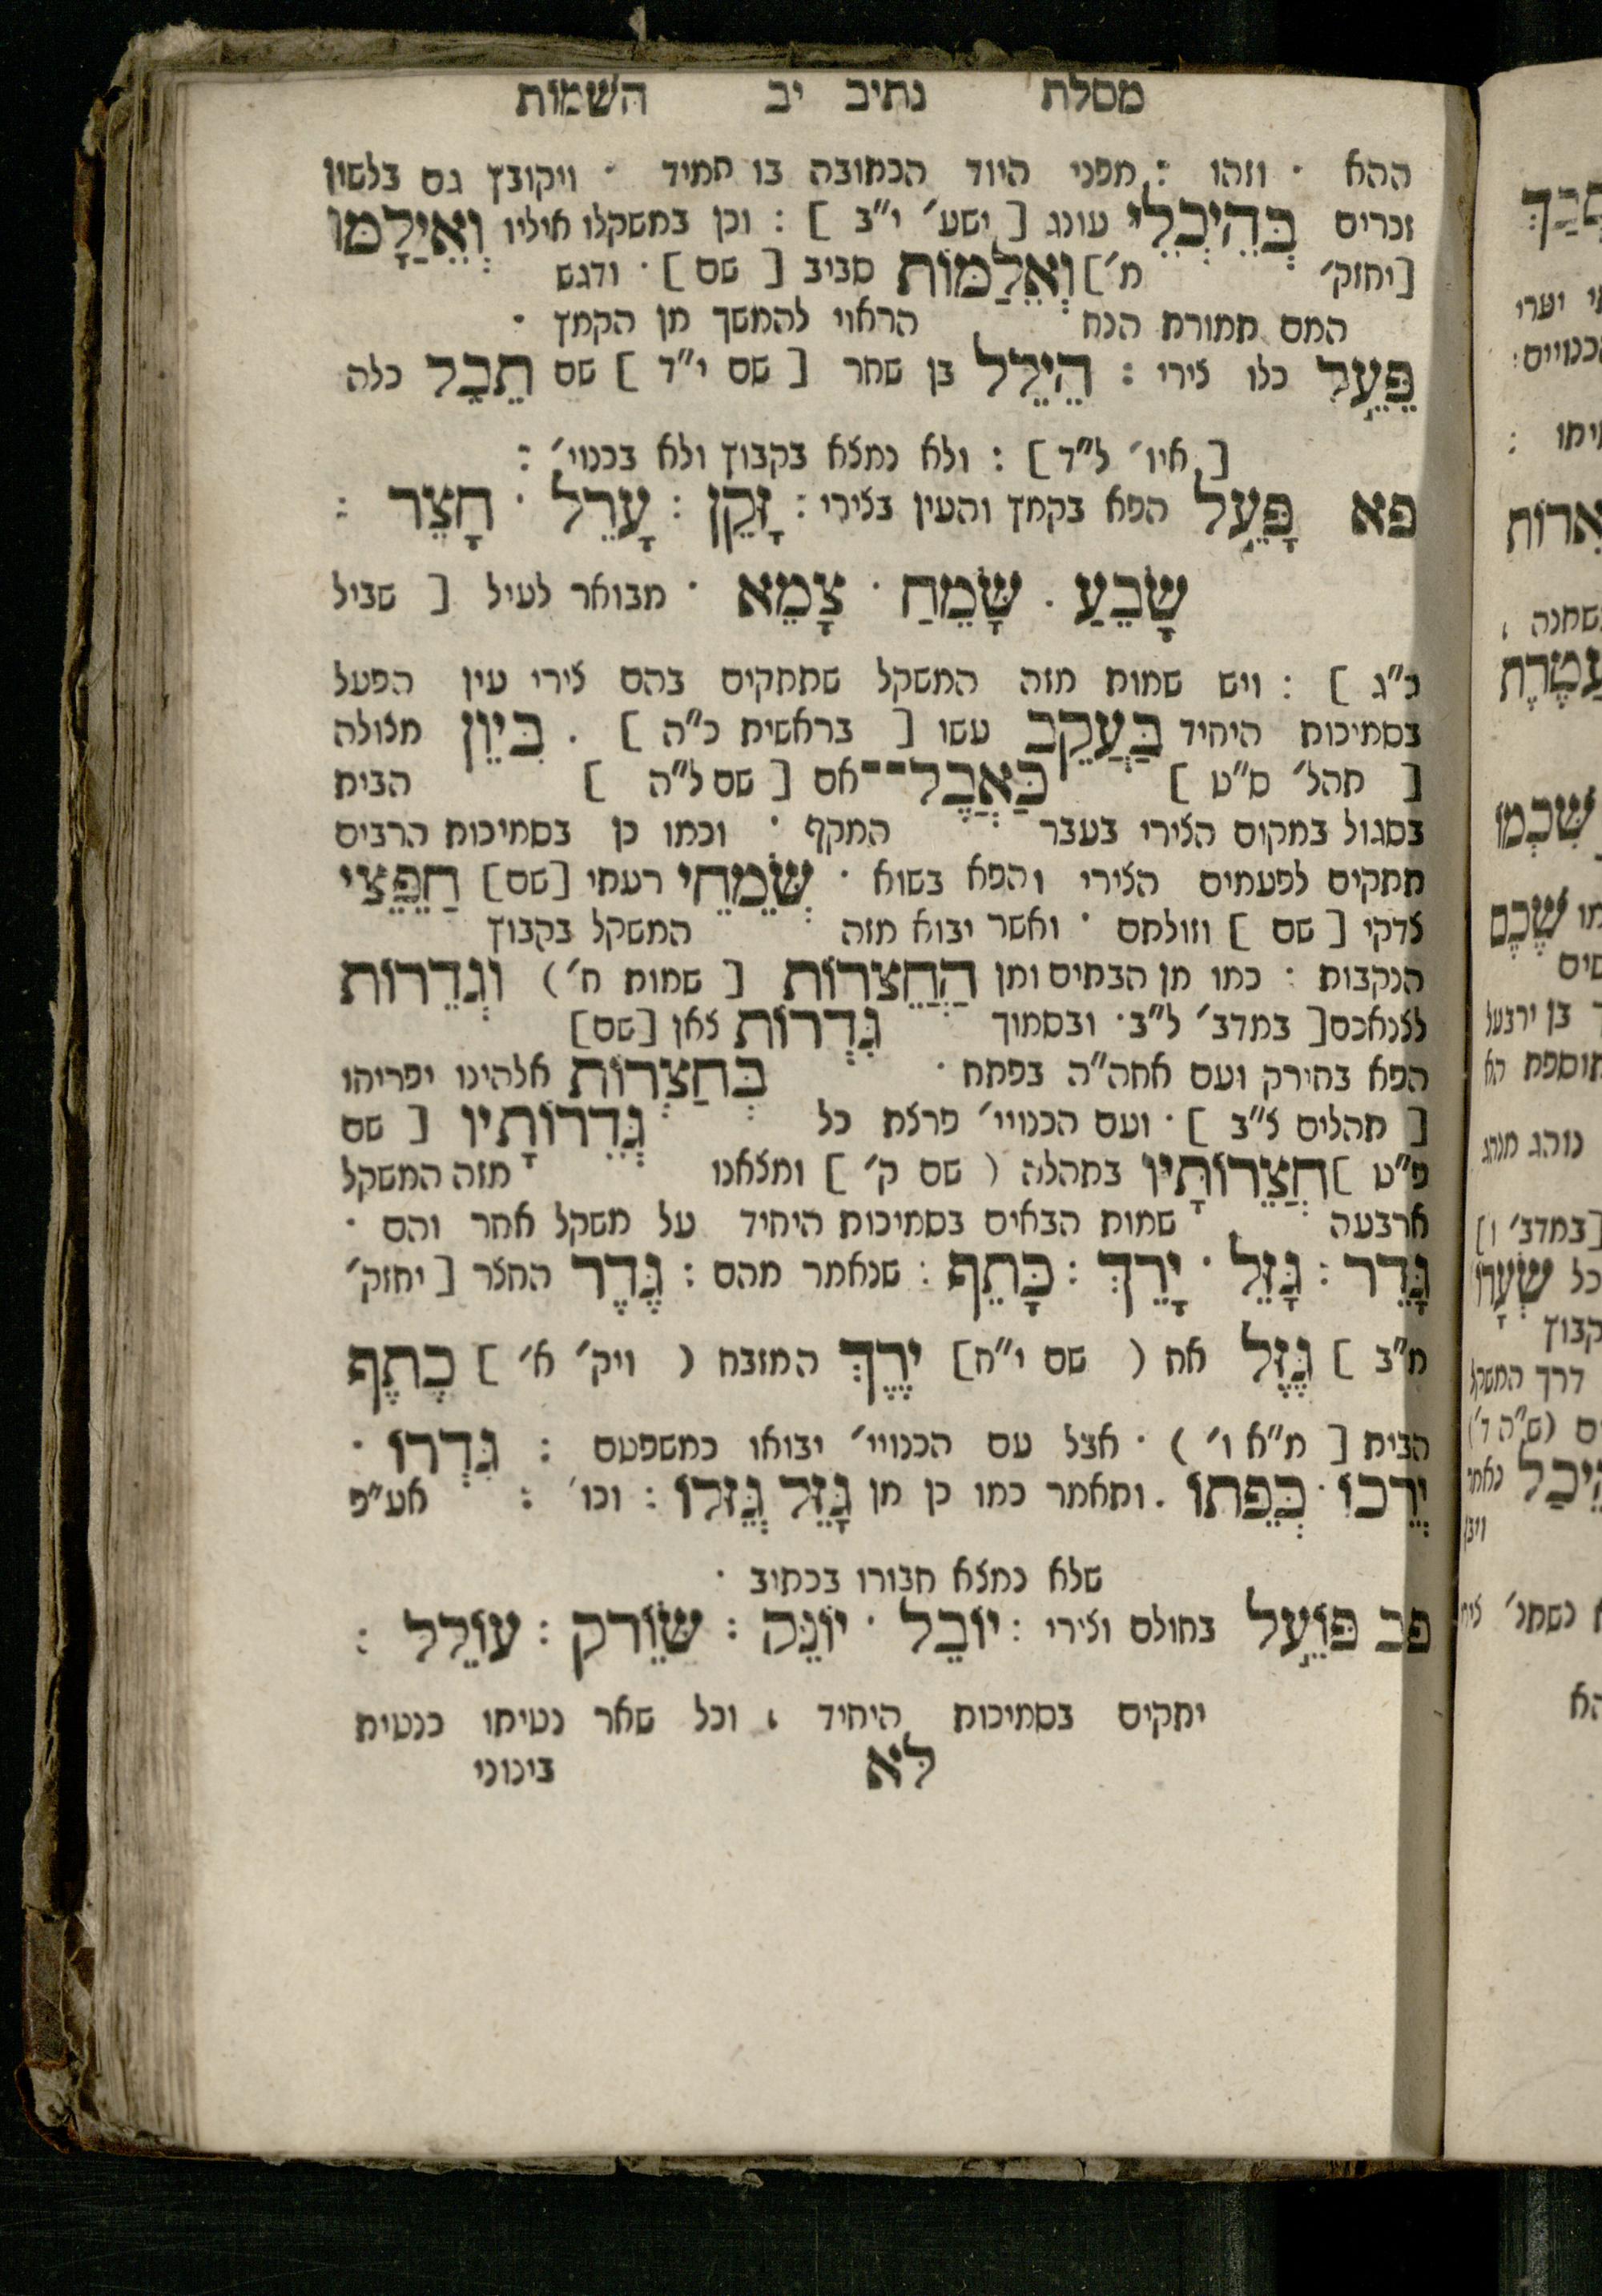 מסלת נתיב יב השמות
ההא · וזהו : מפני היוד הכתובה בו תמיד · ויקובץ גם בלשון
זכרים בְּהֵיכְלֵי עונג [ ישע׳ י״ב ] : וכן במשקלו איליו וְאֵילַמָּו
[יחזק׳ מ׳] וְאֵלַמּוֹת סביב [ שם ] · ודגש
המם תמורת הנח הראוי להמשך מן הקמץ ·
פֵּעֵל כלו צירי : הֵילֵל בן שחר [ שם י״ד ] שם תֵבֵל כלה
[ איו׳ ל״ד ] : ולא נמצא בקבוץ ולא בכנוי׳ :
פא פָּעֵל הפא בקמץ והעין בצירי : זָקֵן : עָרֵל · חָצֵר :
שָׂבֵעַ · שָׂמֵחַ · צָמֵא · מבואר לעיל [ שביל
כ״ג ] : ויש שמות מזה המשקל שמתקים בהם צירי עין הפעל
בסמיכות היחיד בַּעֲקֵב עשו [ בראשית כ״ה ] · בִּיוֵן מצולה
[ תהל׳ ס״ט ] כַּאֲבֶל־־אם [ שם ל״ה ] הבית
בסגול במקום הצירי בעבר המקף · וכמו כן בסמיכות הרבים
תתקים לפעמים הצירי והפא בשוא · שְׂמֵחֵי רעתי [שם] חֲפֵצֵי
צדקי [ שם ] וזולתם · ואשר יבוא מזה המשקל בקבוץ
הנקבות : כמו מן הבתים ומן הַחֲצֵרוֹת [ שמות ח׳ ) וְגִדֵרוֹת
לצנאכם [ במדב׳ ל״ב · ובסמוך גִּדְרוֹת צאן [שם]
הפא בחירק ועם אחה״ה בפתח · בְּחַצְרוֹת אלהינו יפריחו
[ תהלים צ״ב ] · ועם הכנויי׳ פרצת כל גְּדֵרוֹתָיו [ שם
פ״ט ] חֲצֵרוֹתָיו בתהלה ( שם ק׳ ] ומצאנו מזה המשקל
ארבעה שמות הבאים בסמיכות היחיד על משקל אחר והם ·
גָּדֵר : גָּזֵל · יָרֵךְ : כָּתֵף : שנאמר מהם : גֶּדֶר החצר [ יחזק׳
מ״ב ] גֶּזֶל אח ( שם י״ח ] יֶרֶךְ המזבח ( ויק׳ א׳ ] כֶּתֶף
הבית [ מ״א ו׳ ) · אבל עם הכנויי׳ יבואו כמשפטם : גִּדְרוֹ ·
יְרֵכוֹ · כְּתֵפוֹ · ותאמר כמו כן מן גָּזֵל גְּזֵלוֹ : וכו׳ : אע״פ
שלא נמצא חבורו בכתיב ·
פב פּוֹעֵל בחולם וצירי : יוֹבֵל · יוֹנֵק : שׂוֹרֵק : עוֹלֵל :
יתקים בסמיכות היחיד , וכל שאר נטיתו כנטית
לא בינוני